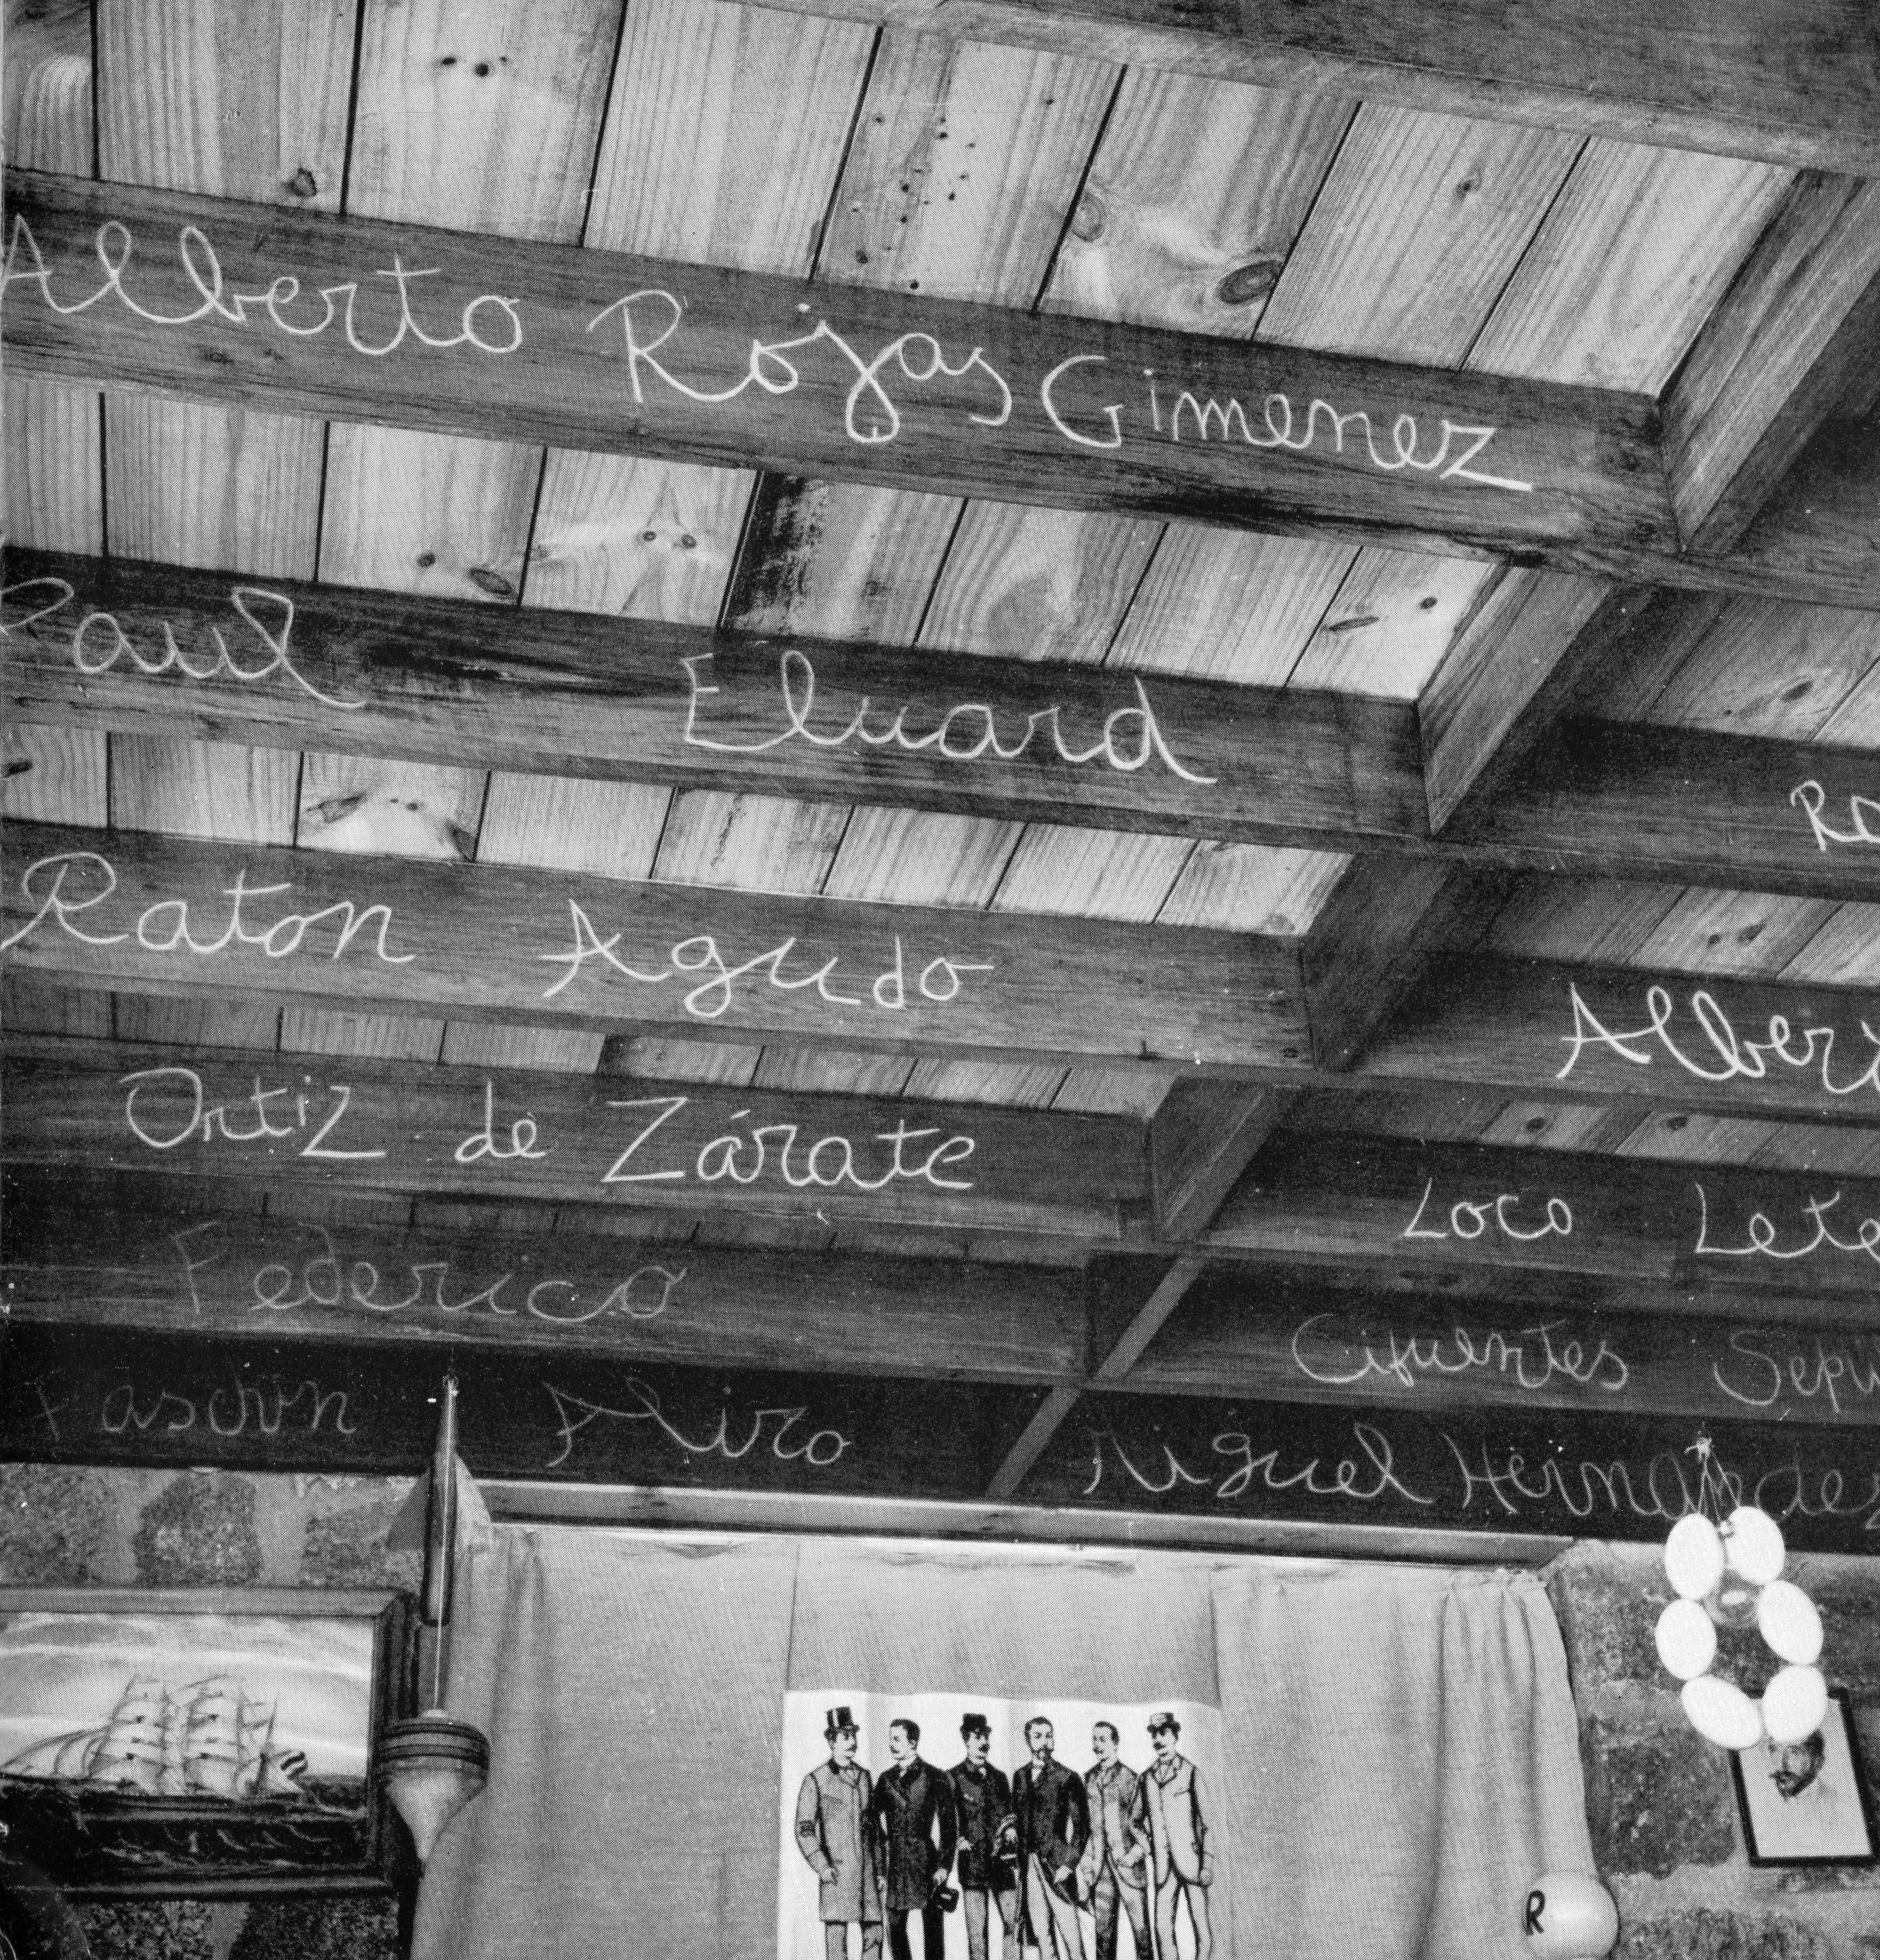 Alberto Rojas Gimenez
Paul Eluard
Raton Agudo
Alberto
Ortiz de Zárate
Loco
Federico
Cifuentes
Aliro
Miguel Hernandez
R